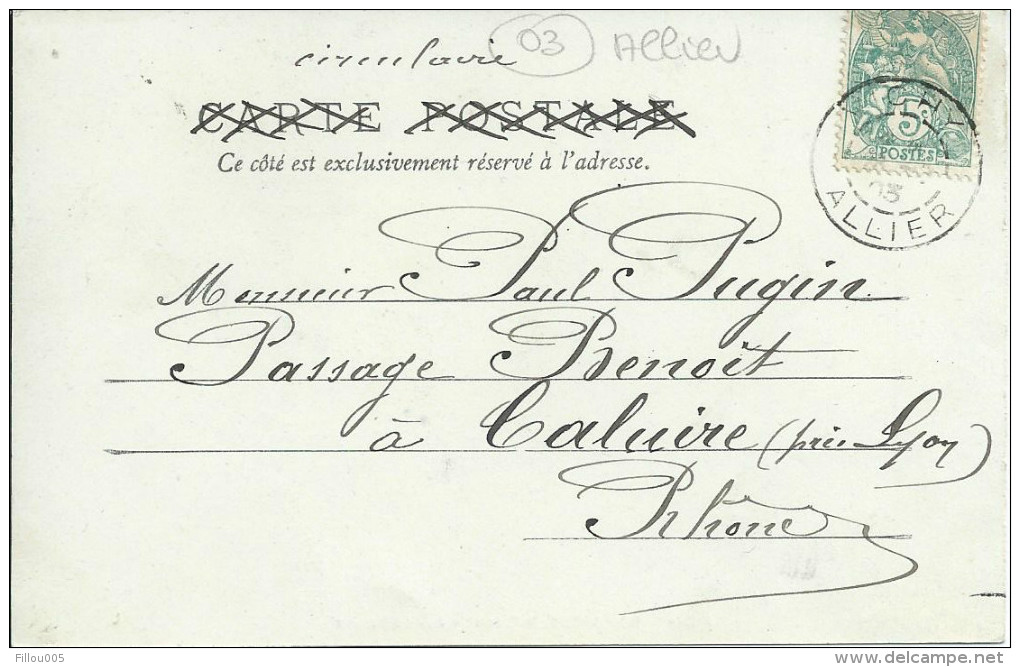 circulaire
03 Allier
CARTE POSTALE
Ce côté est exclusivement réservé à l'adresse.
5c
POSTES
VICHY
03
ALLIER
Monsieur Paul Pugin
Passage Benoit
à Caluire (près Lyon)
Rhône
Fillou005
delcampe.net